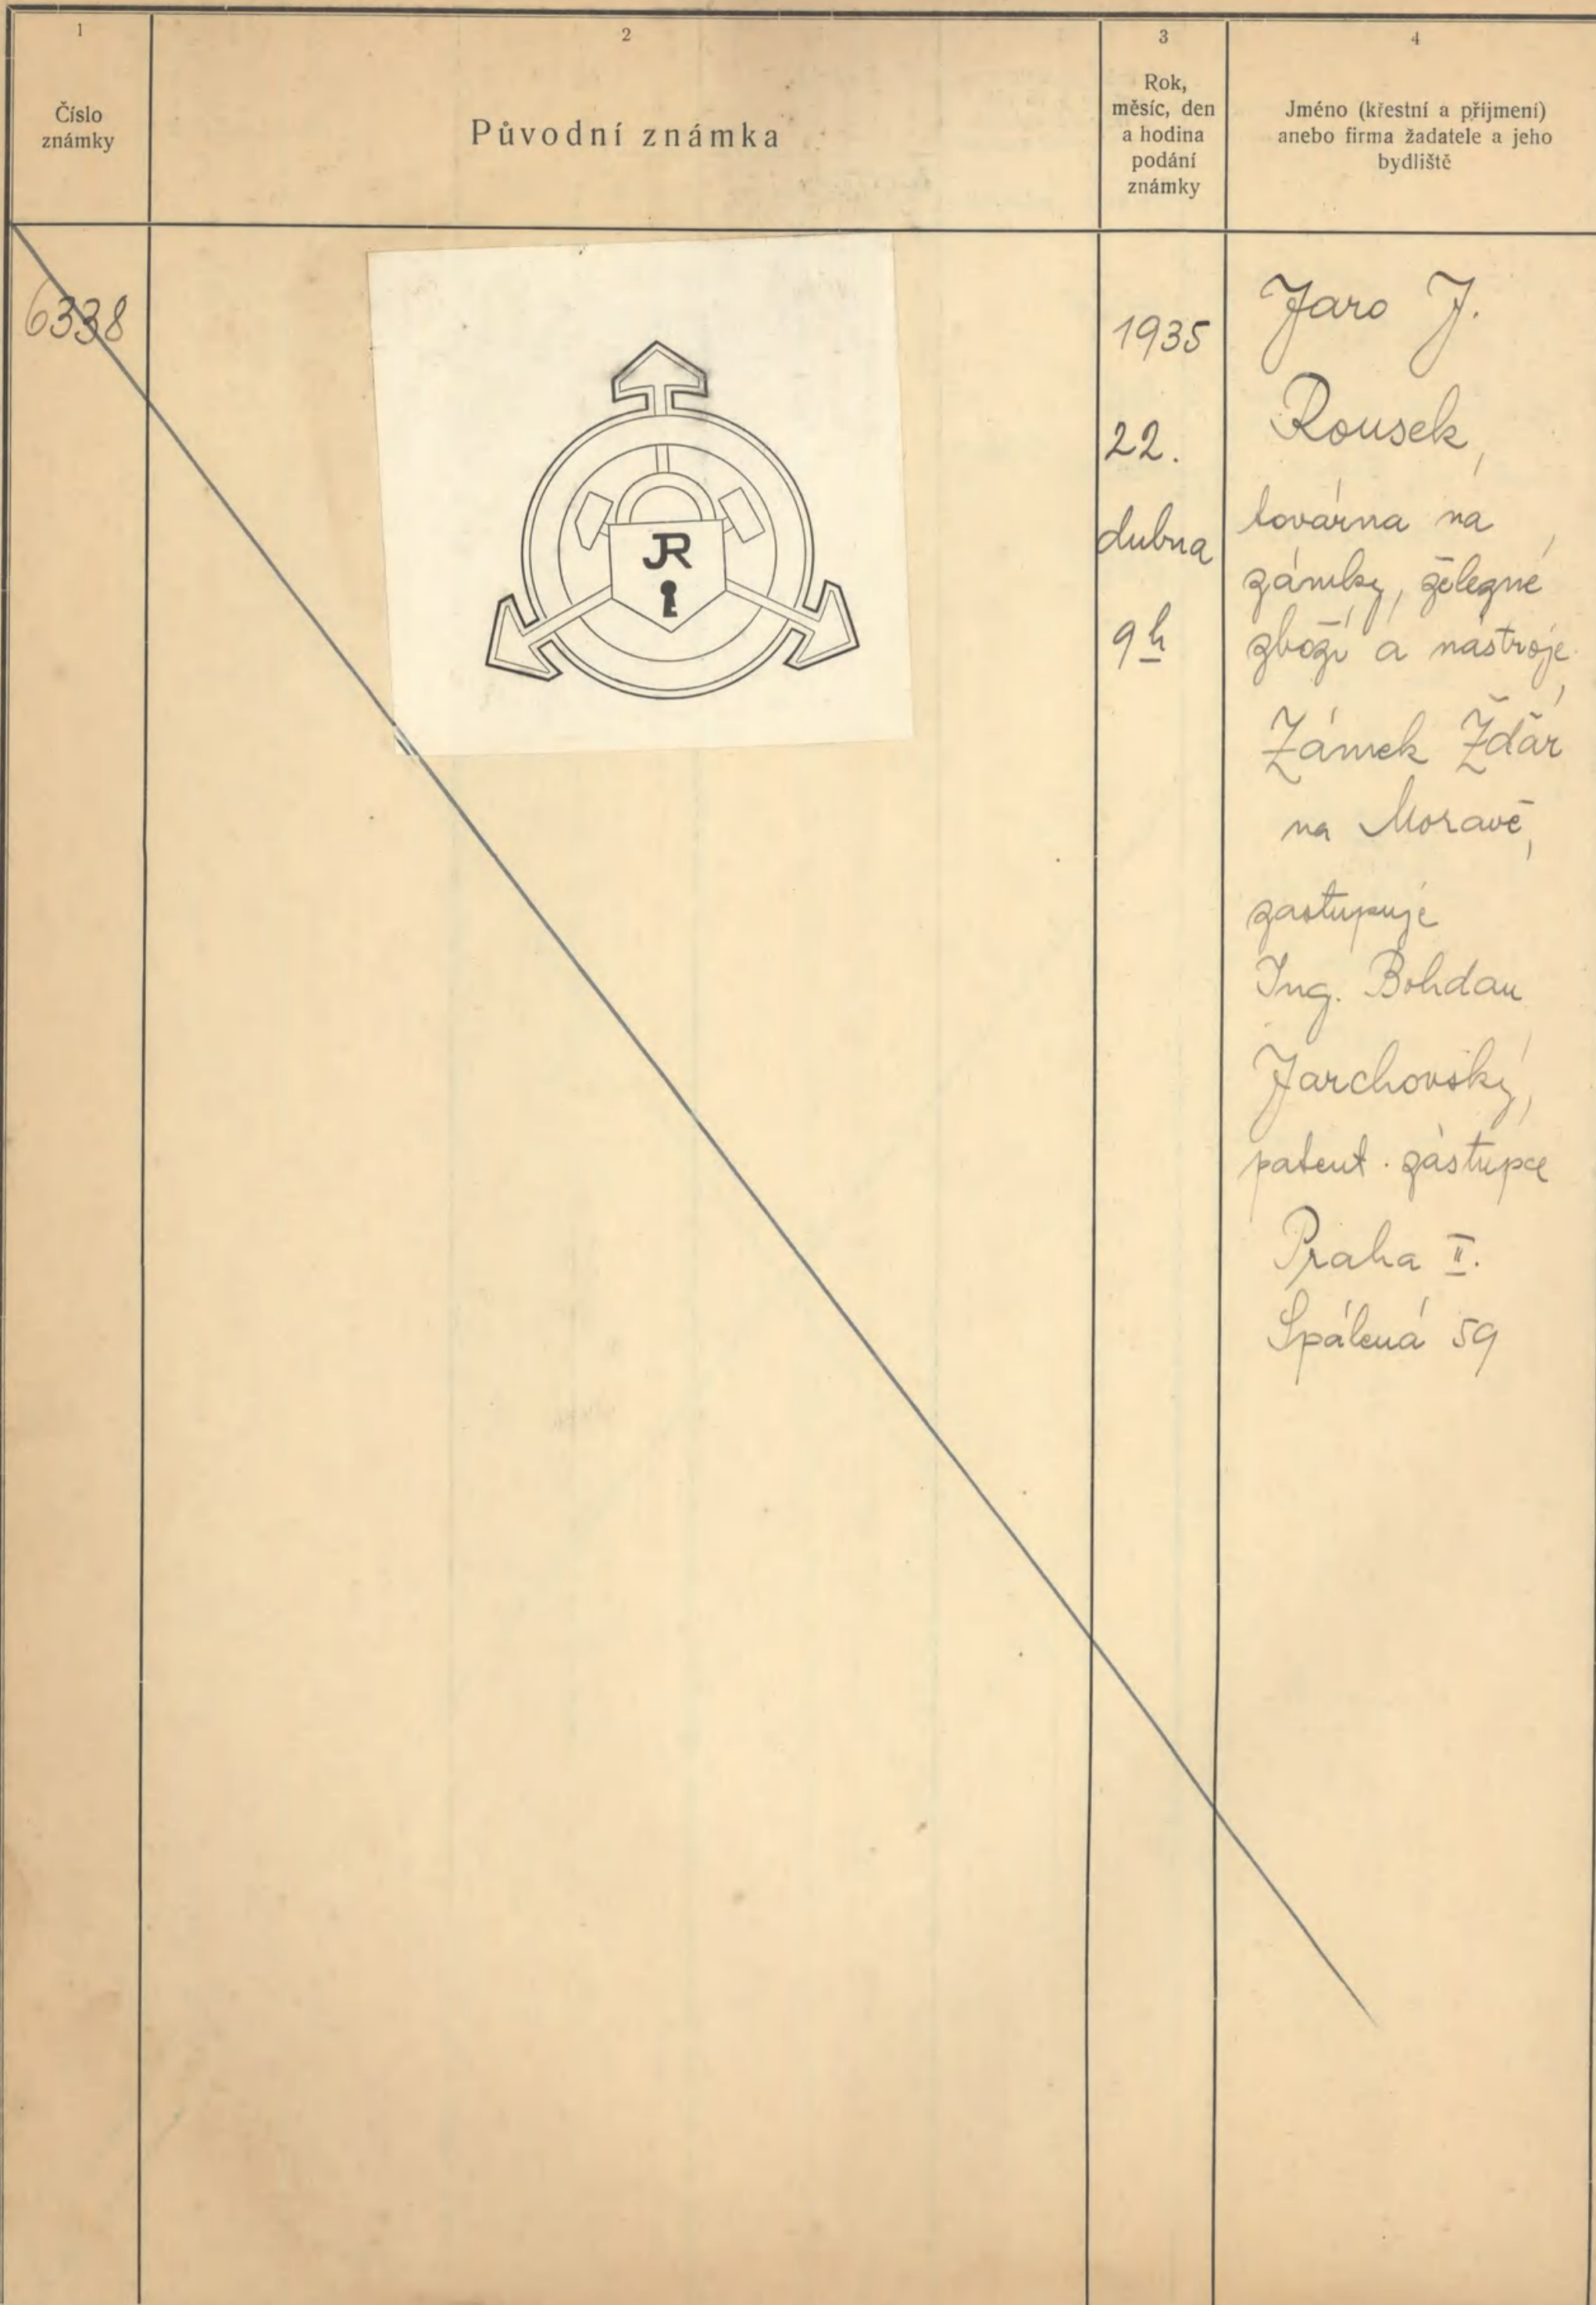 1
Číslo
známky
2
Původní známka
3
Rok,
měsíc, den
a hodina
podání
známky
4
Jméno (křestní a příjmení)
anebo firma žadatele a jeho
bydliště
6338
JR
1935
22.
dubna
9 h
Jaro J.
Rousek,
továrna na
zámky, železné
zboží a nástroje,
Zámek Žďár
na Moravě,
zastupuje
Ing. Bohdan
Jarchovský,
patent. zástupce
Praha II.
Spálená 59